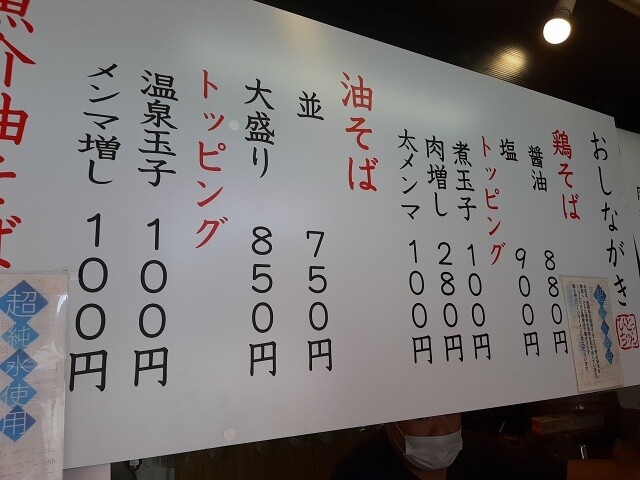 おしながき
鶏そば
醤油 880円
塩 900円
トッピング
煮玉子 100円
肉増し 280円
太メンマ 100円
油そば
並 750円
大盛り 850円
トッピング
温泉玉子 100円
メンマ増し 100円
魚介油そば
超純水使用